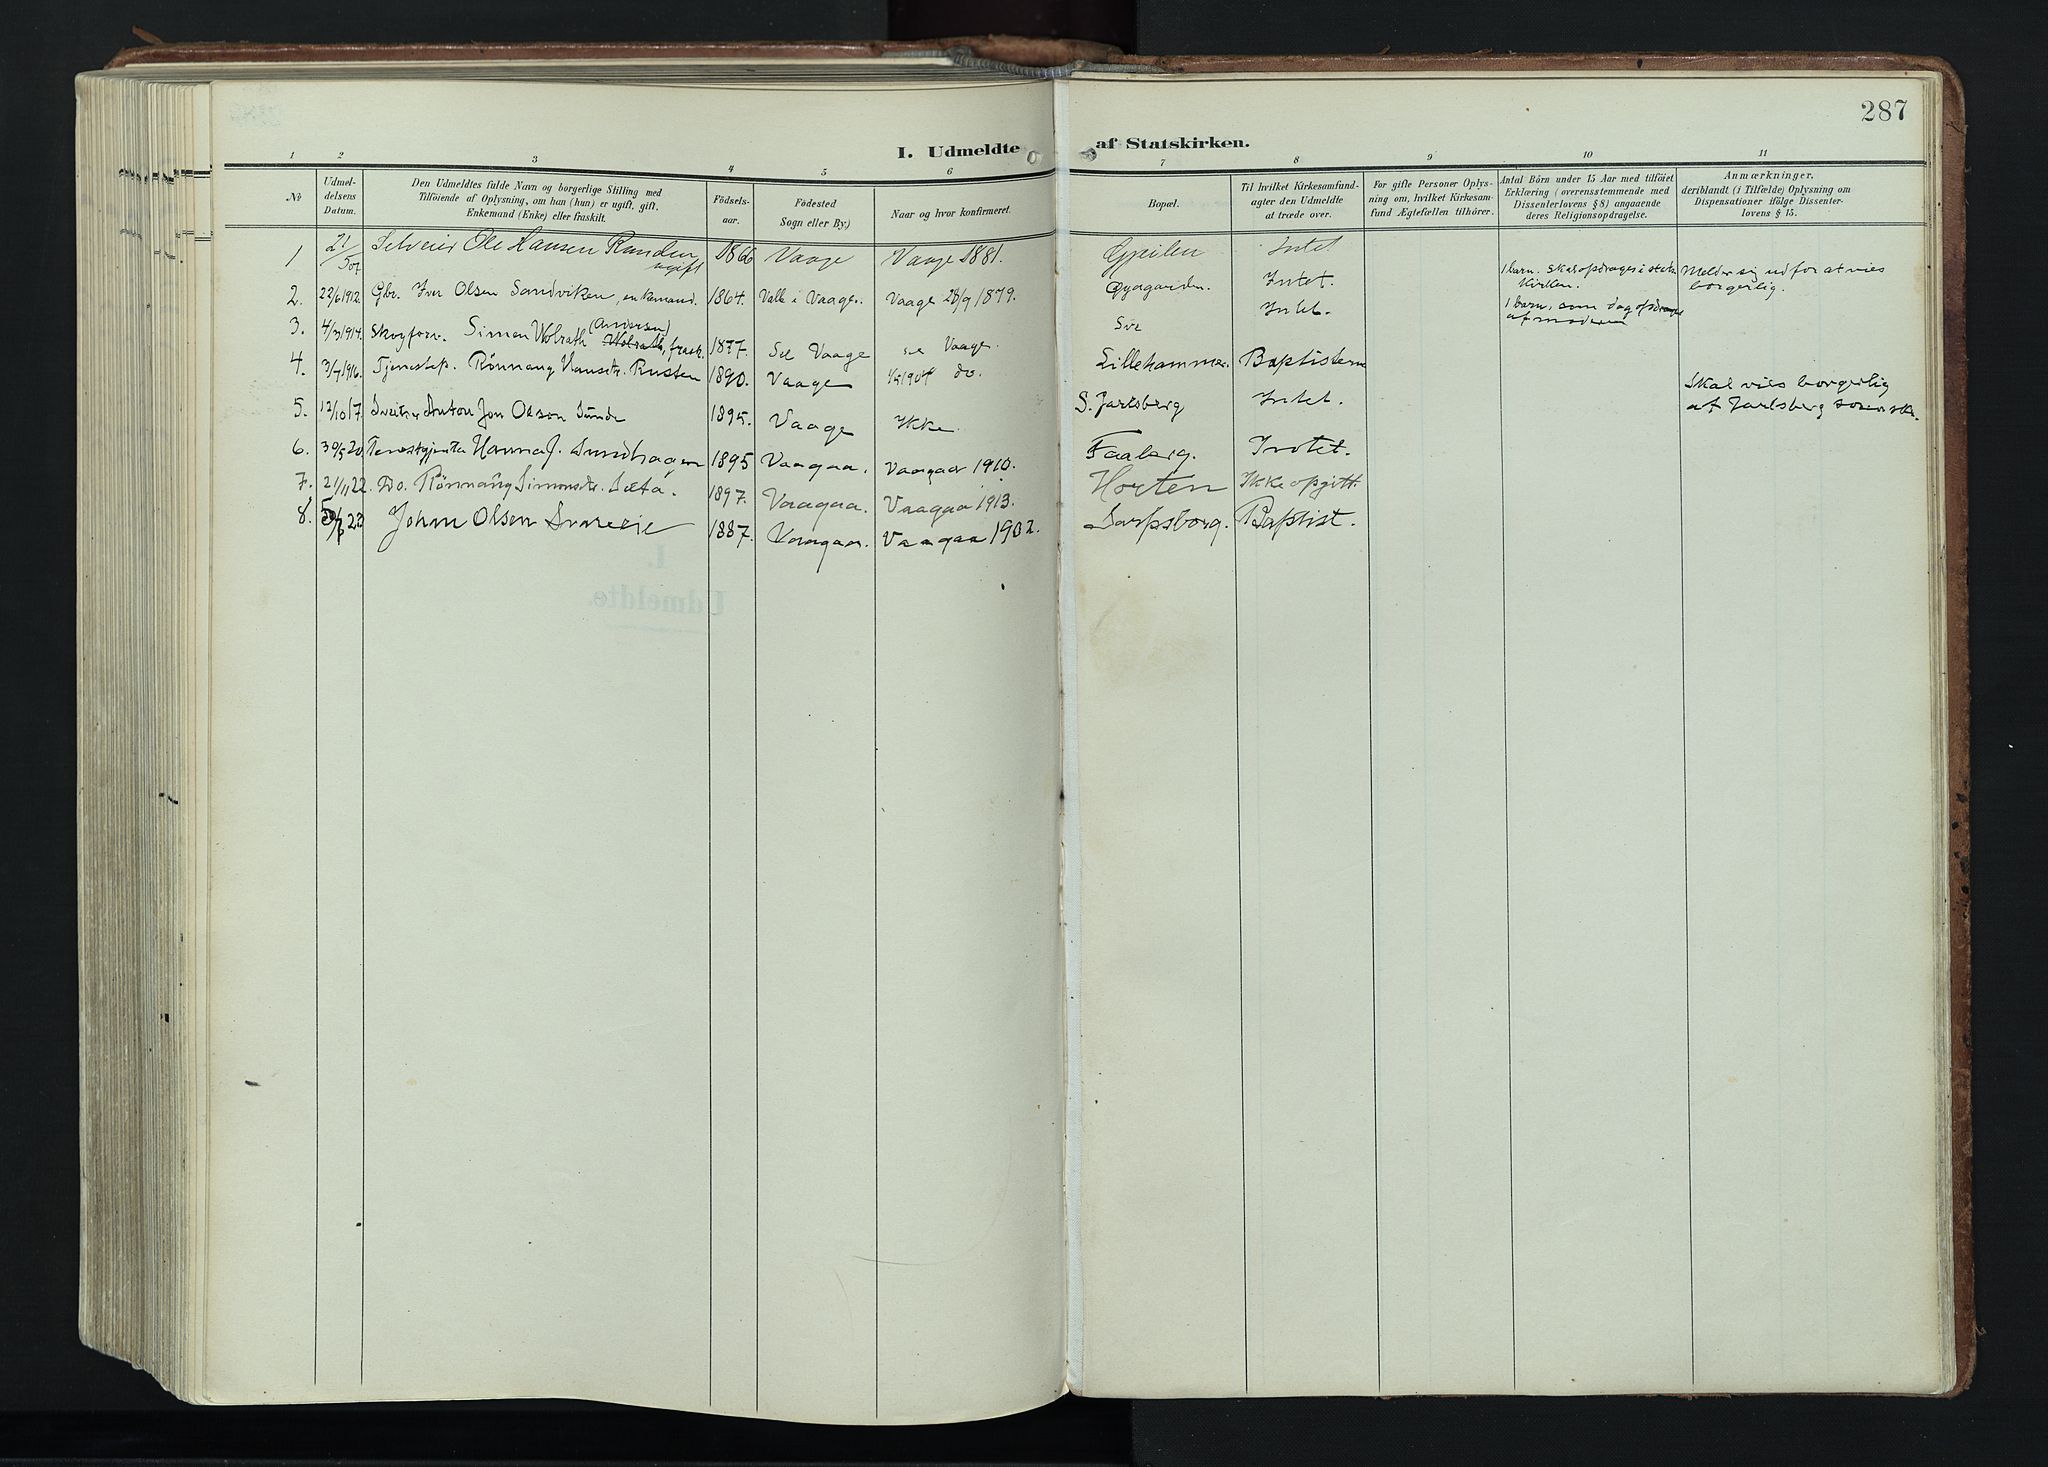 287
I. Udmeldte af Statskirken.
1 2 3 4 5 6 7 8 9 10 11
№
Udmel-
delsens
Datum.
Den Udmeldtes fulde Navn og borgerlige Stilling med
Tilföiende af Oplysning, om han (hun) er ugift, gift,
Enkemand (Enke) eller fraskilt.
Födsels-
aar.
Födested
Sogn eller By.)
Naar og hvor konfirmeret.
Bopæl.
Til hvilket Kirkesamfund-
agter den Udmeldte
at træde over.
For gifte Personer Oplys-
ning om, hvilket Kirkesam-
fund Ægtefællen tilhörer.
Antal Börn under 15 Aar med tilföiet
Erklæring (overensstemmende med
Dissenterlovens § 8) angaaende
deres Religionsopdragelse.
Anmærkninger,
deriblandt (i Tilfælde) Oplysning om
Dispensationer ifölge Dissenter-
lovens § 15.
1 21/5 07 Selveier Ole Hansen Randen ugift 1866 Vaage Vaage 1881. Intet
2. 22/6 1912. Gbr. Iver Olsen Sandviken, enkemand. 1864. Valle i Vaage. Vaage 28/9 1879. Intet. 1 barn. skal opdrages i stats Kirken. Melder sig ud for at vies borgerlig.
3. 4/3 1914. Skogforv. Simen Wolrath (Andersen) Wolrath, frask. 1877. Sel Vaage Sel Vaage. Intet. 1 barn, som dog opdrages af moderen
4. 3/7 1916. Tjenestep. Rønnaug Hansdtr. Rusten 1890. Vaage 1904 do. Lillehammer. Baptisterne
5. 12/10 17. Anton Jon Olsen Sunde 1895. Vaage Ikke. S. Jarlsberg Intet. Skal vies borgerlig af Jarlsberg sorenskr.
6. 30/5 20 Tenestgjenta Hanna J. Sundhagen 1895 Vaagaa. Vaagaa 1910. Faaberg. Intet.
7. 21/11 22. Do. Rønnaug Simonsdtr. Sæta. 1897. Vaagaa. Vaagaa 1913. Horten Ikke opgitt.
8. 23 Johan Olsen Svareeie 1887. Vaagaa. Vaagaa 1902. Sarpsborg. Baptist.